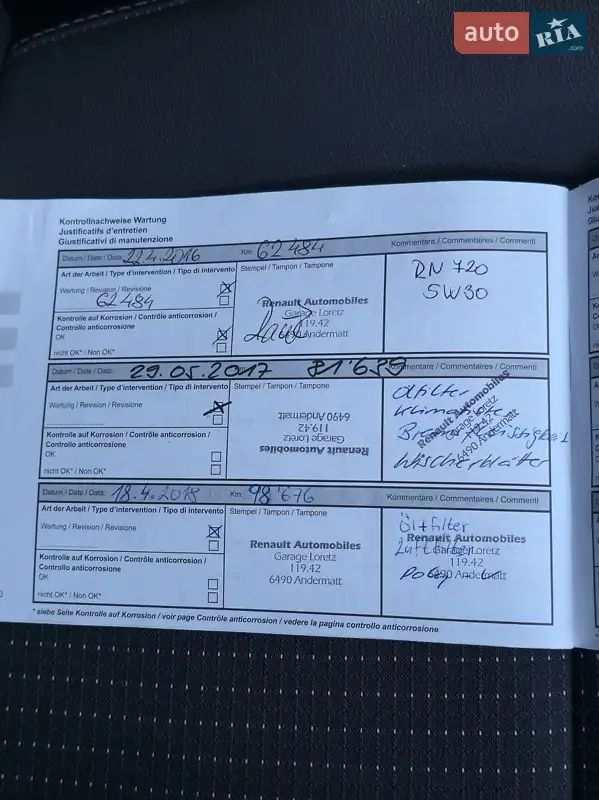 auto RIA.com
Kontrollnachweise Wartung
Justificatifs d'entretien
Giustificativi di manutenzione
Datum / Date / Data: 22.4.2016 Km: 62484 Kommentare / Commentaires / Commenti
Art der Arbeit / Type d'intervention / Tipo di intervento Stempel / Tampon / Tampone
Wartung / Revision / Revisione
62484
Kontrolle auf Korrosion / Contrôle anticorrosion /
Controllo anticorrosione
OK
nicht OK* / Non OK*
Renault Automobiles
Garage Loretz
119.42
6490 Andermatt
RN 720
5W30
Datum / Date / Data: 29.05.2017 81'639 Kommentare / Commentaires / Commenti
Art der Arbeit / Type d'intervention / Tipo di intervento Stempel / Tampon / Tampone
Wartung / Revision / Revisione
Kontrolle auf Korrosion / Contrôle anticorrosion /
Controllo anticorrosione
OK
nicht OK* / Non OK*
Renault Automobiles
Garage Loretz
119.42
6490 Andermatt
Ölfilter
Wischerblätter
Renault Automobiles
Garage Loretz
119.42
6490 Andermatt
Datum / Date / Data: 18.4.2018 Km: 98'676 Kommentare / Commentaires / Commenti
Art der Arbeit / Type d'intervention / Tipo di intervento Stempel / Tampon / Tampone
Wartung / Revision / Revisione
Kontrolle auf Korrosion / Contrôle anticorrosion /
Controllo anticorrosione
OK
nicht OK* / Non OK*
Renault Automobiles
Garage Loretz
119.42
6490 Andermatt
Öl+filter
Luftfilter
Renault Automobiles
Garage Loretz
119.42
6490 Andermatt
* siehe Seite Kontrolle auf Korrosion / voir page Contrôle anticorrosion / vedere la pagina controllo anticorrosione